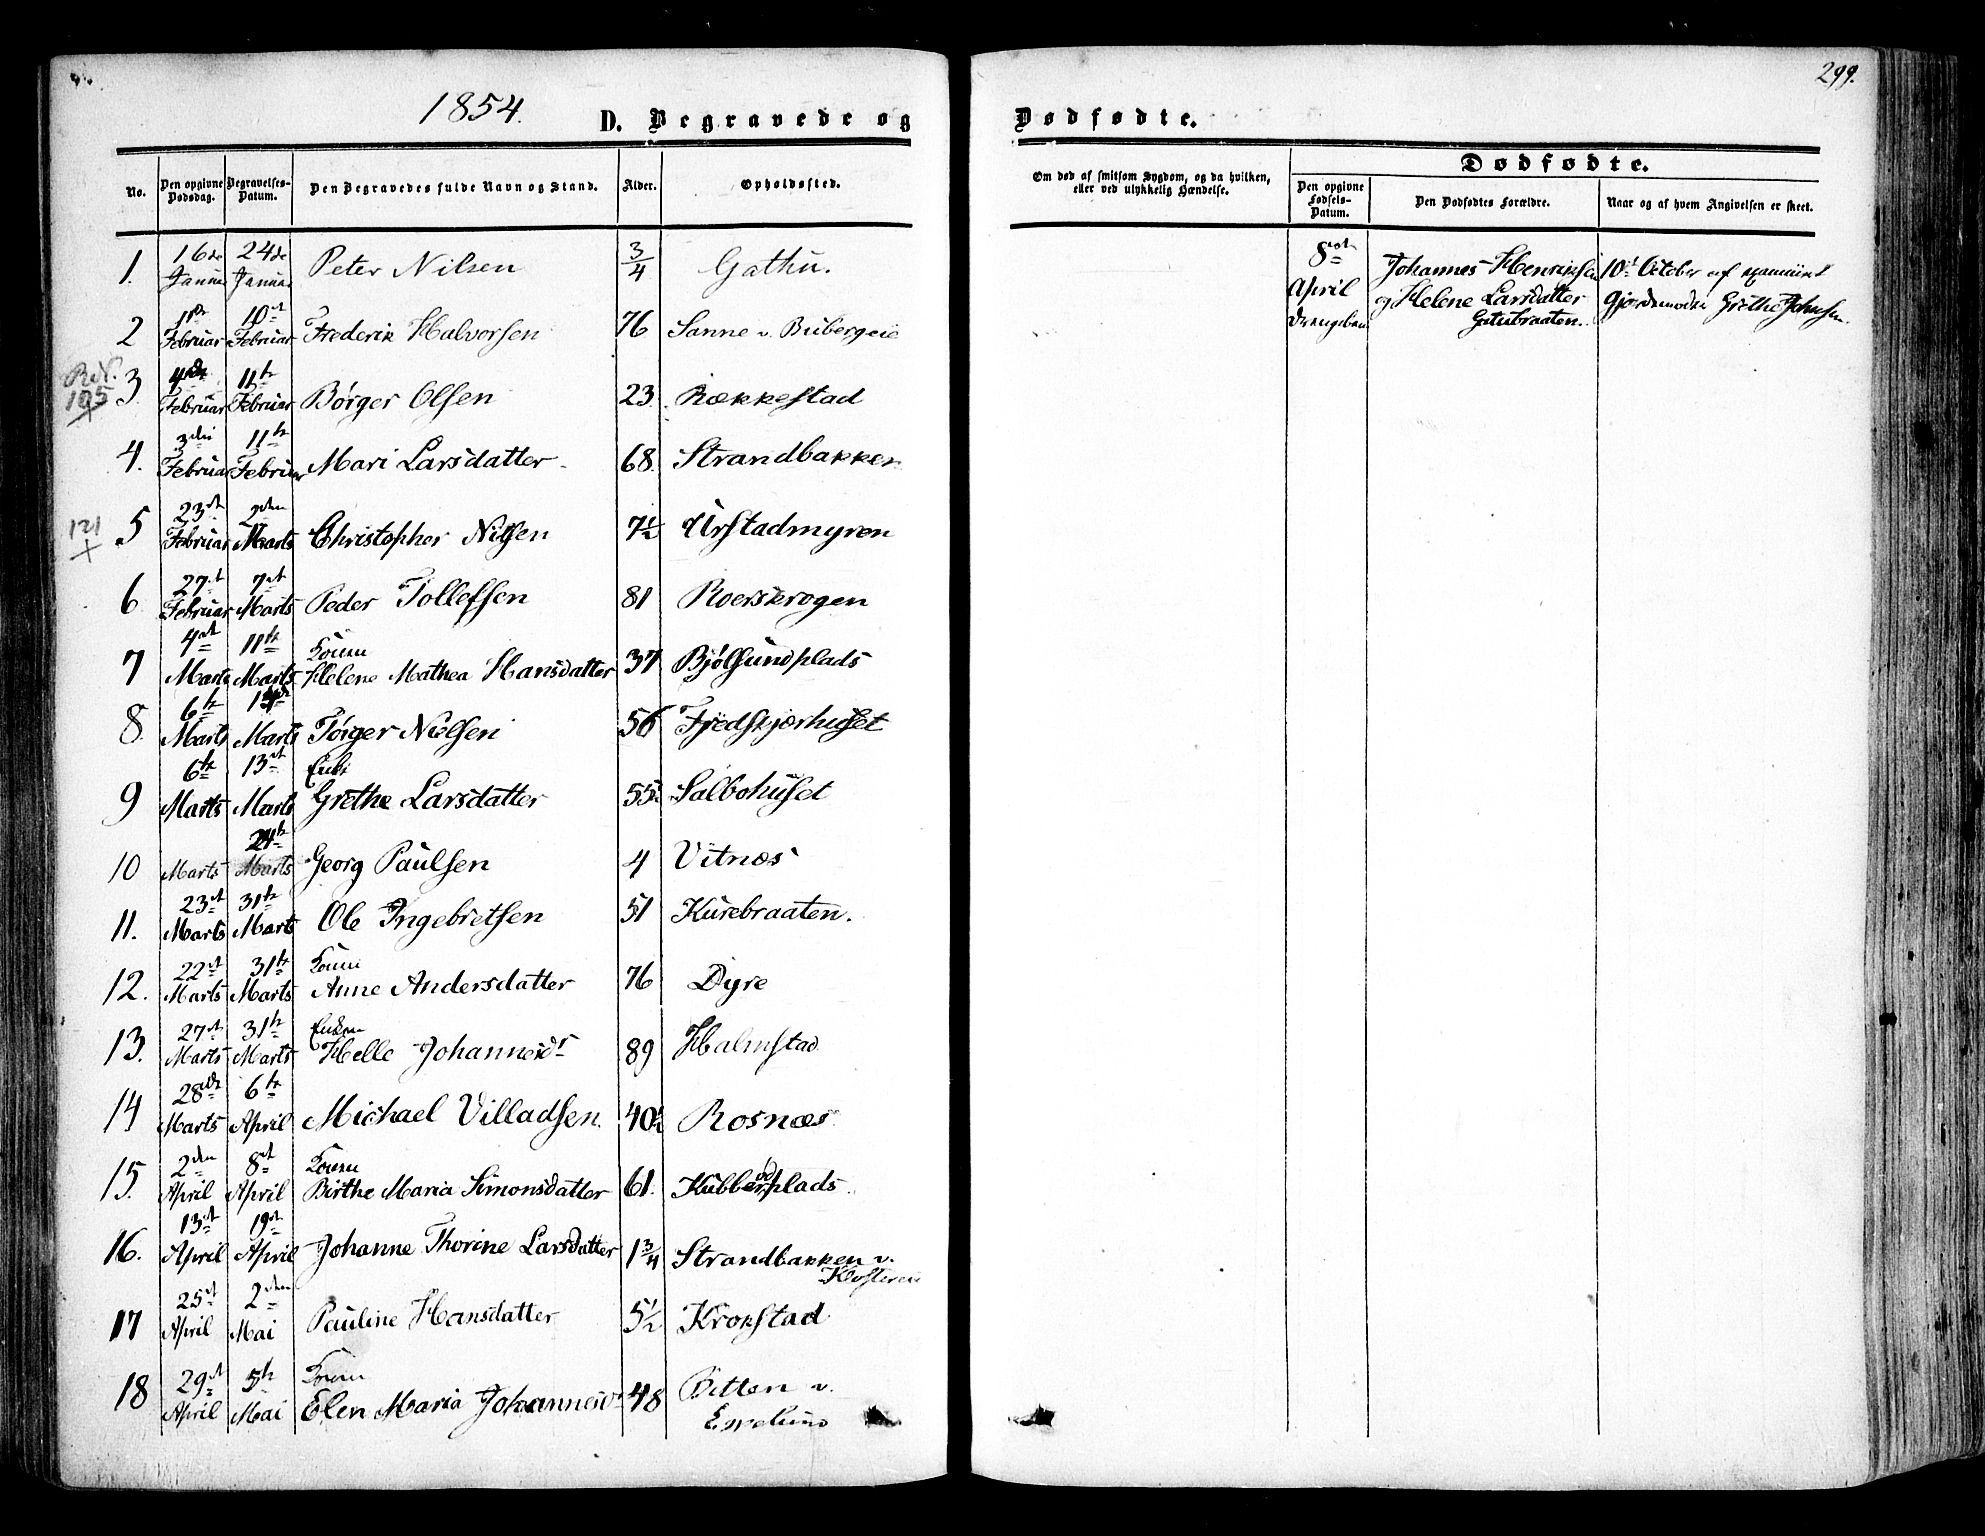 299.
1854.
D. Begravede og Dødfødte.
No.
Den opgivne Dødsdag.
Begravelses-Datum.
Den Begravedes fulde Navn og Stand.
Alder.
Opholdssted.
Om død af smitsom Sygdom, og da hvilken, eller ved ulykkelig Hændelse.
Dødfødte.
Den opgivne Fødsels-Datum.
Den Dødfødtes Forældre.
Naar og af hvem Angivelsen er skeet.
1. 16de Januar 24de Januar Peter Nilsen 3/4 Gathu.
2 Februar 10de Februar Frederik Halvorsen 76 Sanne v.
3 Februar 11te Februar Børger Olsen 23 Rækkestad
105
4. 3die Februar 11te Februar Mari Larsdatter 68 Strandbakken
5 23de Februar 2den Marts Christopher Nilsen 7 1/2 Urstadmyren
121
6 27de Februar 7de Marts Peder Tollefsen 81 Roerskrogen
7 4de Marts 11te Marts Konen Helene Mathea Hansdatter 37 Bjølsundplads
8 6te Marts Marts Torger Nielsen 56 Fjedskjærhuset
9 6te Marts 13de Marts Enke Grethe Larsdatter 55 Salbohuset
10 Marts 24de Marts Georg Paulsen 4 Vitnæs
11. 23de Marts 31te Marts Ole Ingebretsen 51 Kurebraaten.
12. 22de Marts 31te Marts Konen Anne Andersdatter 76 Dyre
13. 27de Marts 31te Marts Enken Helle Johannesdr 89 Halmstad
14 28de Marts 6te April Michael Villadsen 40 1/2 Rosnæs
15. 2den April 8de April Konen Birthe Maria Simonsdatter 61. Kubberødplads
16. 13de April 19de April Johanne Thorine Larsdatter 1 3/4 Strandbakken v.
17 25de April 2den Mai Pauline Hansdatter 5 1/2 Krokstad
18 29de April 5te Mai Konen Elen Maria Johannesd 48 Bitten v. Espelund
8de April Drengebarn
Johannes Henriksen
og Helene Larsdatter
Gatubraaten.
10de October af examinert
Gjordemoder Grethe Johnsen.